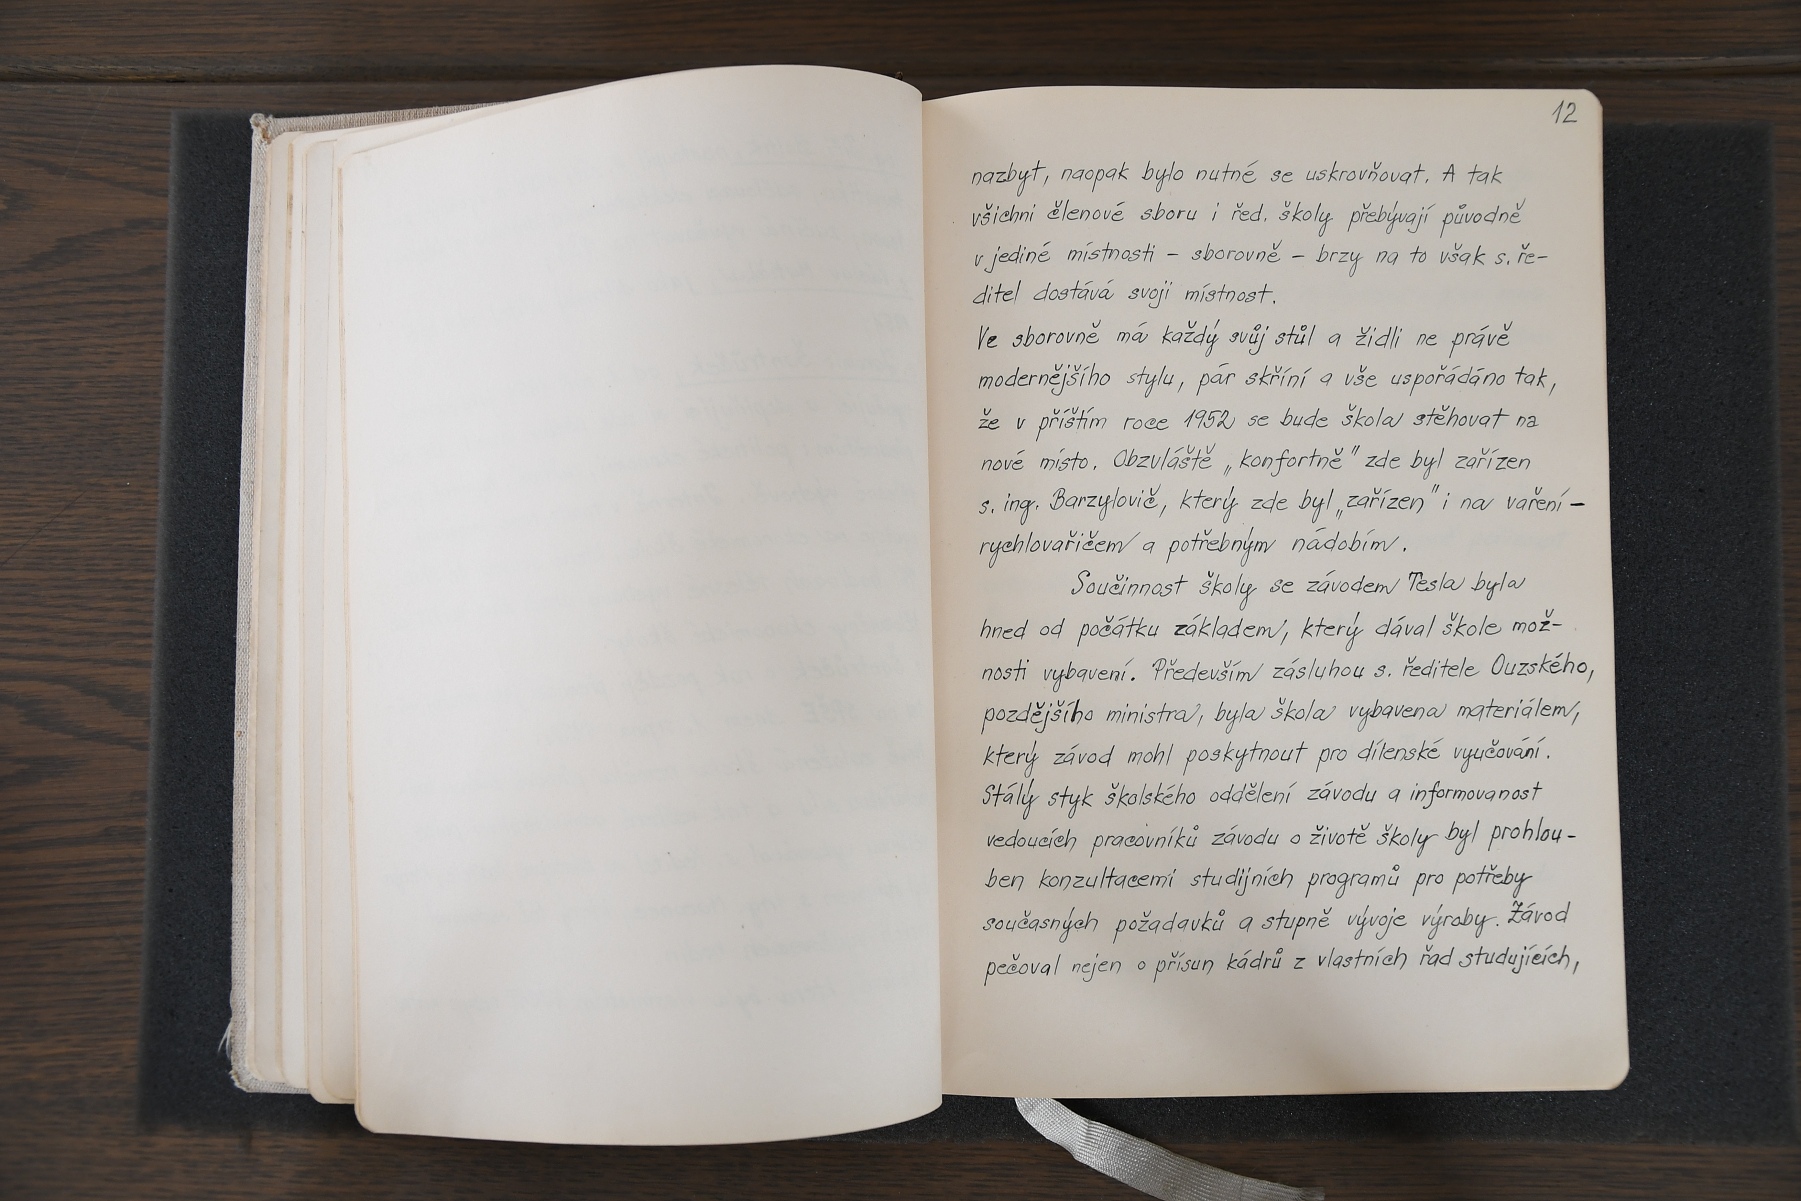 12
nazbyt, naopak bylo nutné se uskrovňovat. A tak
všichni členové sboru i řed. školy přebývají původně
v jediné místnosti – sborovně – brzy na to však s. ře-
ditel dostává svoji místnost.
Ve sborovně má každý svůj stůl a židli ne právě
modernějšího stylu, pár skříní a vše uspořádáno tak,
že v příštím roce 1952 se bude škola stěhovat na
nové místo. Obzvláště „konfortně" zde byl zařízen
s. ing. Barzylovič, který zde byl „zařízen" i na vaření –
rychlovařičem a potřebným nádobím.
Součinnost školy se závodem Tesla byla
hned od počátku základem, který dával škole mož-
nosti vybavení. Především zásluhou s. ředitele Ouzského,
pozdějšího ministra, byla škola vybavena materiálem,
který závod mohl poskytnout pro dílenské vyučování.
Stálý styk školského oddělení závodu a informovanost
vedoucích pracovníků závodu o životě školy byl prohlou-
ben konzultacemi studijních programů pro potřeby
současných požadavků a stupně vývoje výroby. Závod
pečoval nejen o přísun kádrů z vlastních řad studujících,